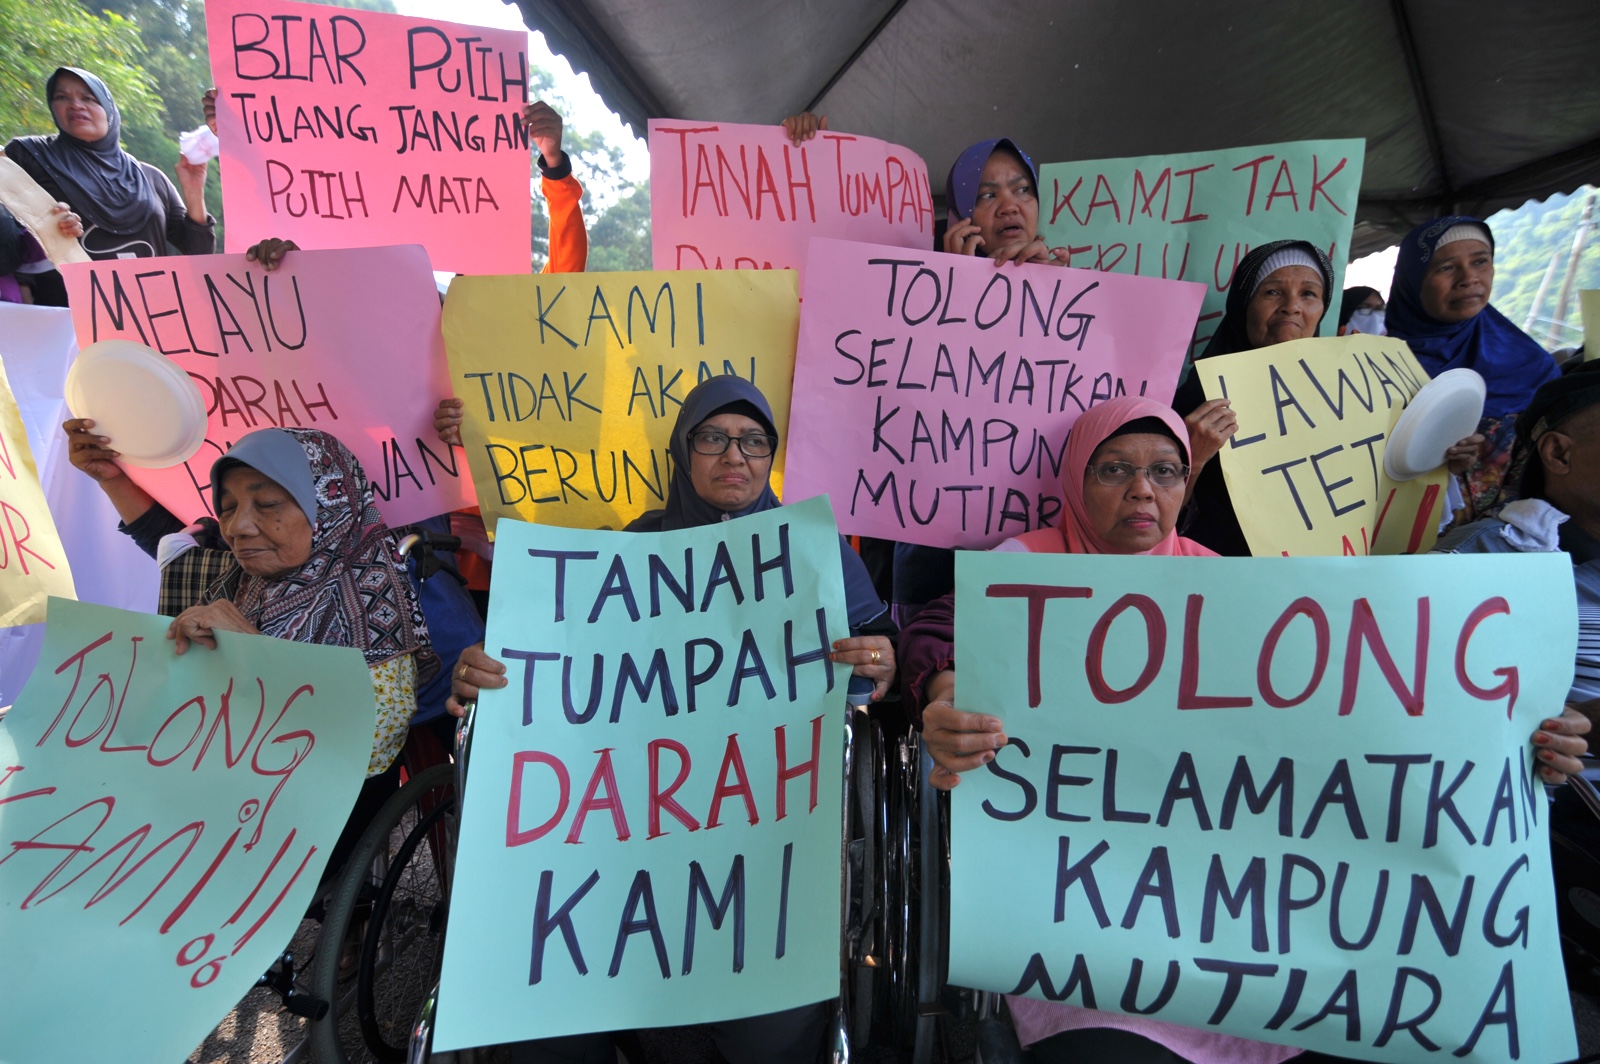 BIAR PUTIH
TULANG JANGAN
PUTIH MATA
TANAH TUMPAH
KAMI TAK
MELAYU
DARAH
KAMI
TIDAK AKAN
TOLONG
SELAMATKAN
KAMPUN
MUTIAR
LAWAN
TOLONG
KAMI!!!
TANAH
TUMPAH
DARAH
KAMI
TOLONG
SELAMATKAN
KAMPUNG
MUTIARA